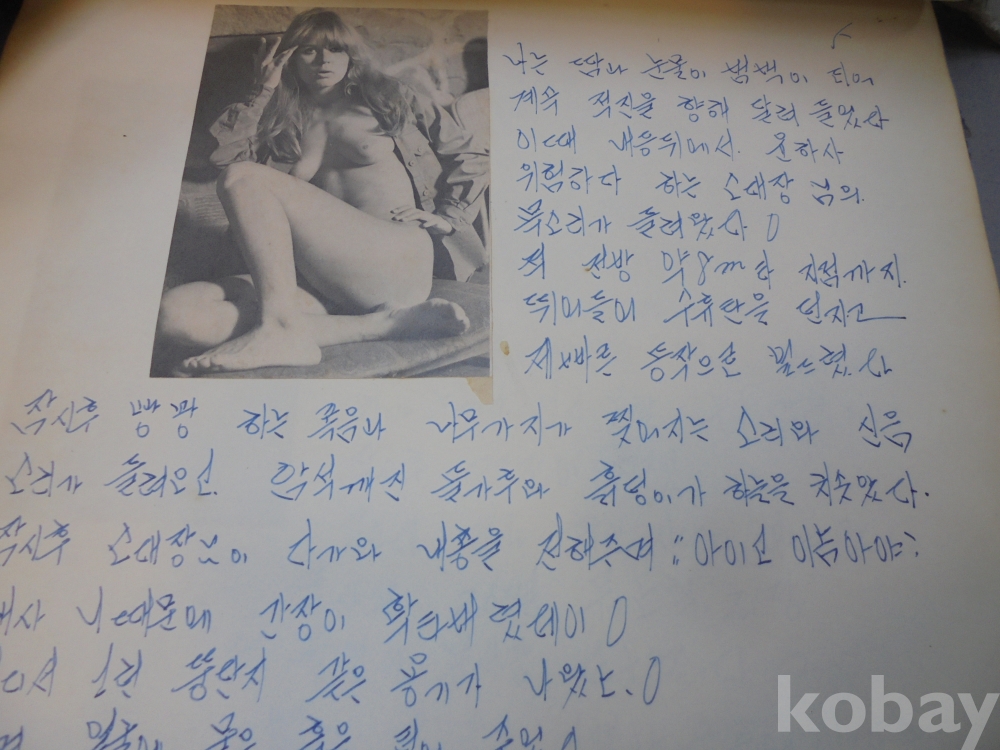 나는 땀과 눈물이 범벅이 되어
계속 적진을 향해 달려 들었다
이때 내등뒤에서. 윤하사
위험하다 하는 소대장 님의.
목소리가 들려왔다
적 전방 약 8m 지점까지.
뛰어들어 수휴탄을 던지고
제빠른 동작으로 엎드렸다
잠시후 꽝꽝 하는 폭음과 나무가지가 찢어지는 소리와 신음
소리가 들려오고. 암석깨진 돌가루와 흙덩이가 하늘을 치솟았다.
잠시후 소대장님이 다가와 내총을 전해주며 "아이고 이놈아야"
니때문에 간장이 확타버렸데이
그런 뚱단지 같은 용기가 나왔노.
묻은 흙을 털어
kobay